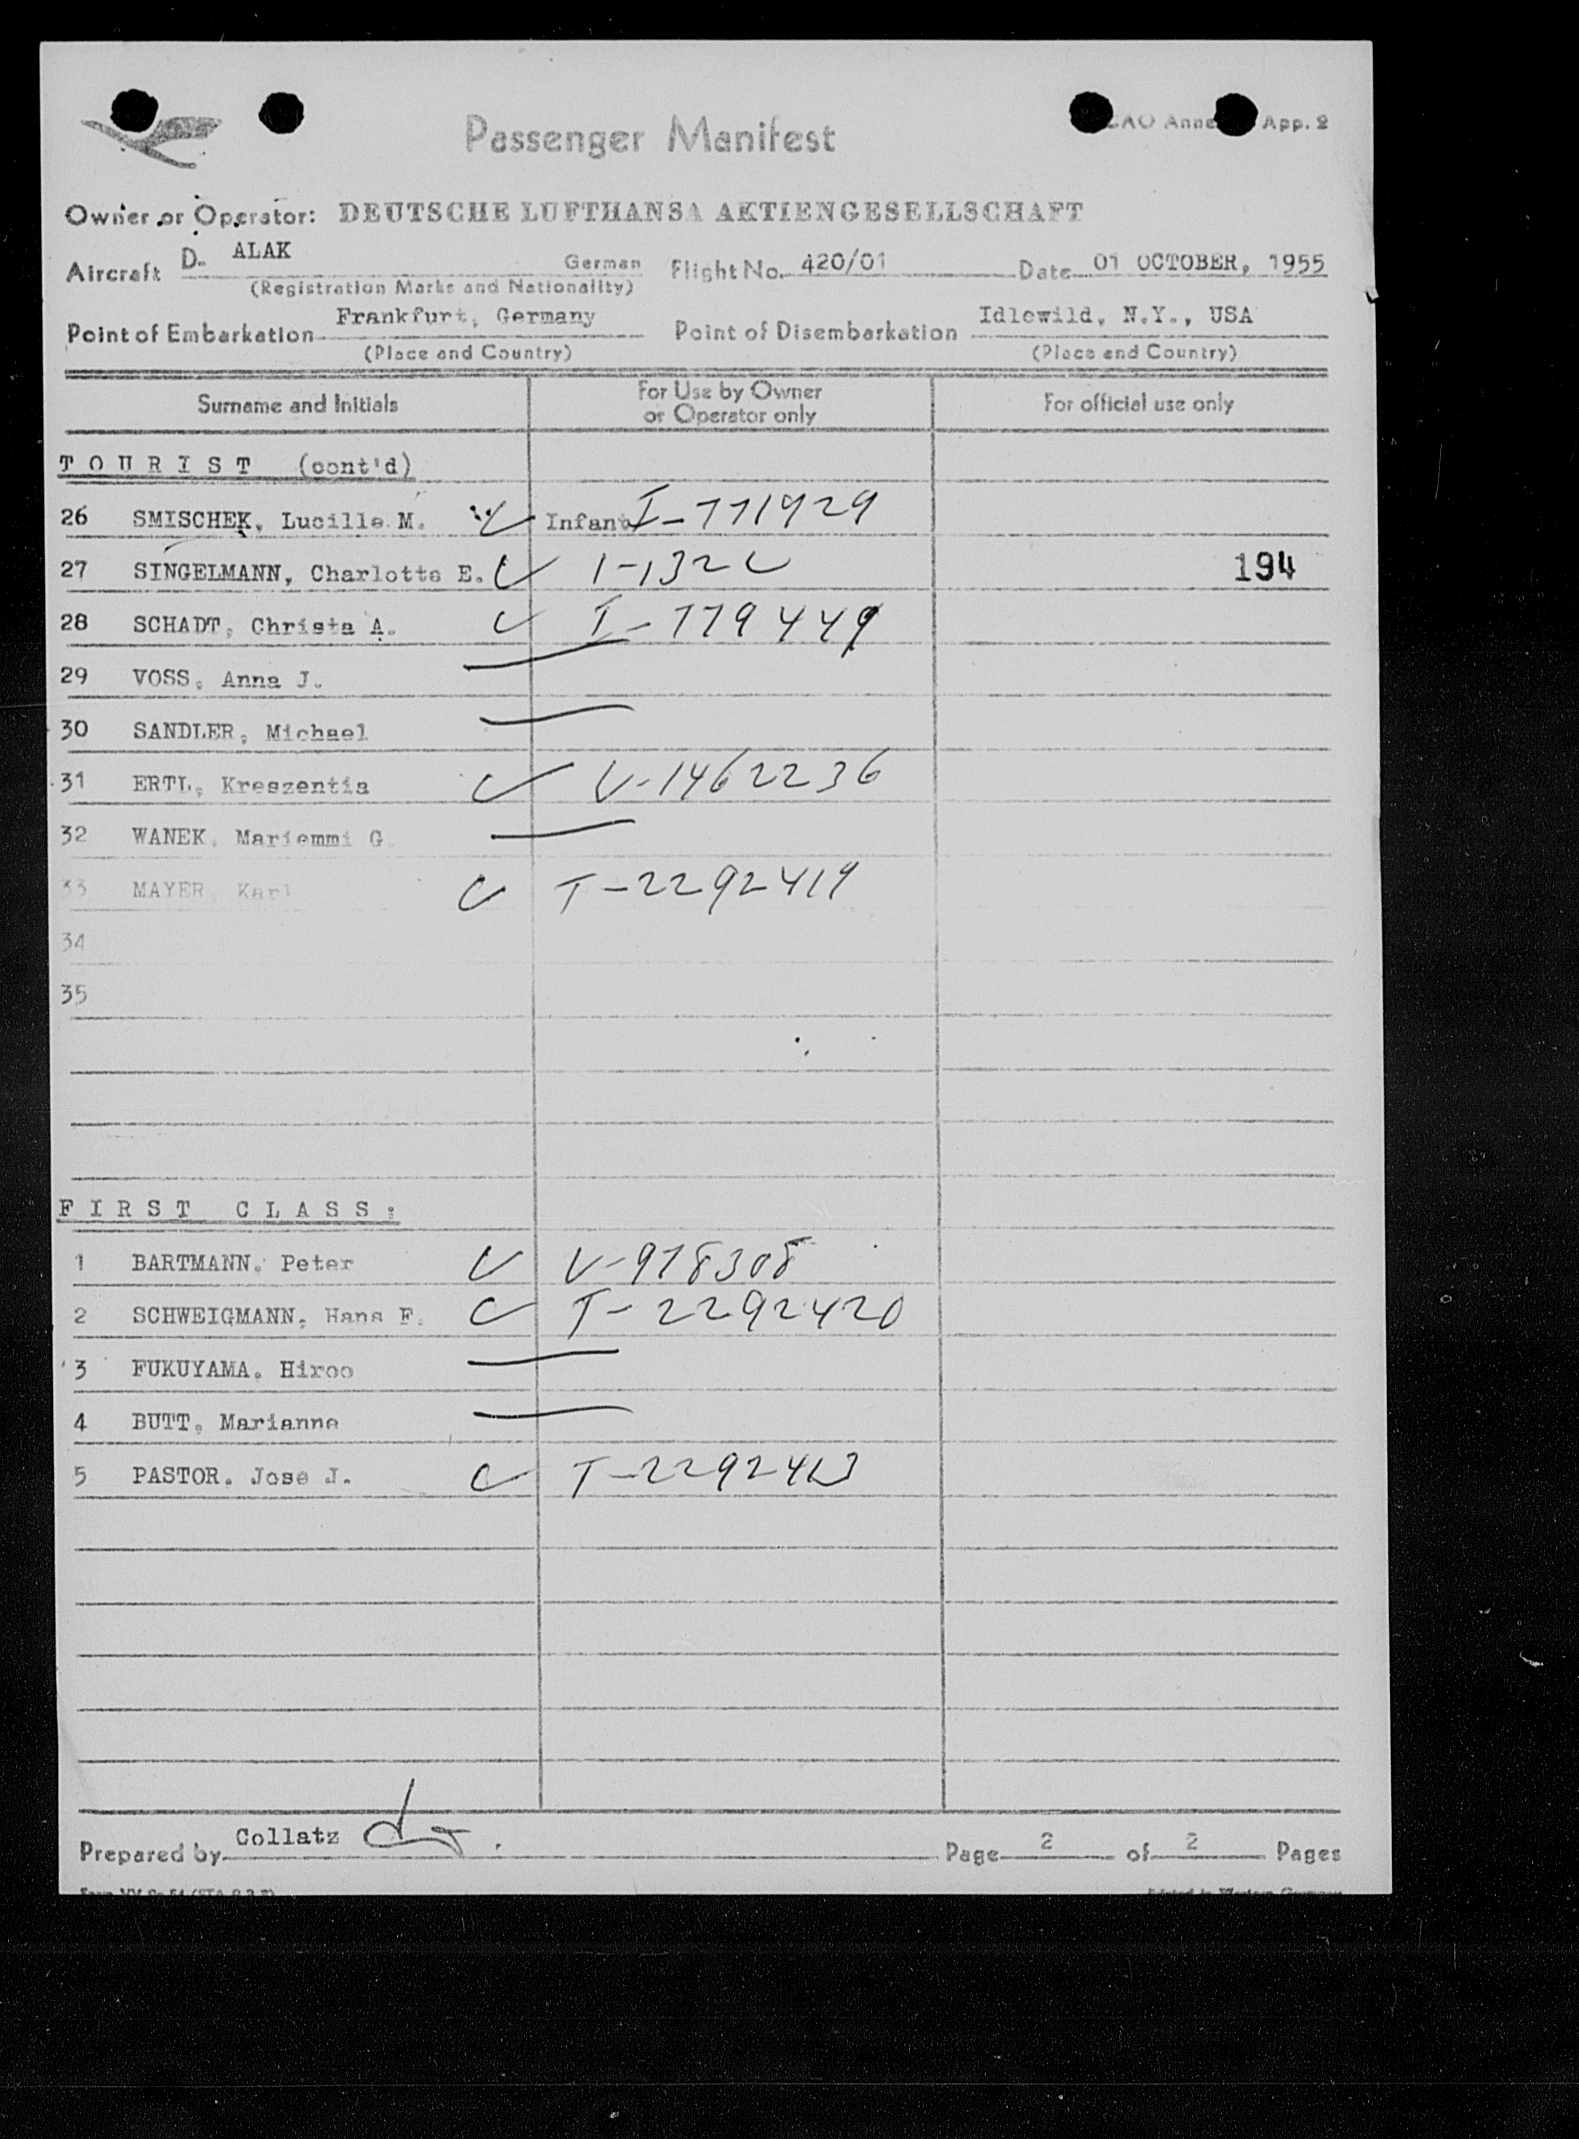 Passenger Manifest
App. 2
Owner or Operator: DEUTSCHE LUFTHANSA AKTIENGESELLSCHAFT
Aircraft D- ALAK German Flight No. 420/01 Date 01 OCTOBER, 1955
(Registration Marks and Nationality)
Point of Embarkation Frankfurt, Germany Point of Disembarkation Idlewild, N.Y., USA
(Place and Country) (Place and Country)
Surname and Initials For Use by Owner or Operator only For official use only
TOURIST (cont'd)
26 SMISCHEK, Lucille M. Infant I-771929
27 SINGELMANN, Charlotte E. 194
28 SCHADT, Christa A. I-779449
29 VOSS, Anna J.
30 SANDLER, Michael
31 ERTL, Kreszentia V-1462236
32 WANEK, Mariemmi G.
33 MAYER, Karl T-2292419
34
35
FIRST CLASS:
1 BARTMANN, Peter V-978308
2 SCHWEIGMANN, Hans F. T-2292420
3 FUKUYAMA, Hiroo
4 BUTT, Marianne
5 PASTOR, Jose J. T-2292413
Prepared by Collatz Page 2 of 2 Pages